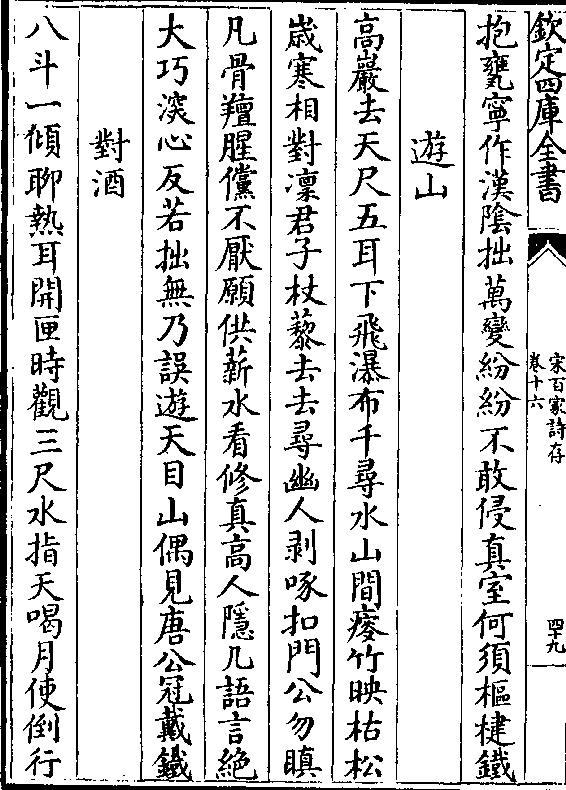 欽定四庫全書
宋百家詩存
卷十六
四十九
抱甕寧作漢陰拙萬變紛紛不敢侵真室何須樞楗鐵
遊山
高巖去天尺五耳下飛瀑布千尋水山間瘦竹映枯松
嵗寒相對凛君子杖藜去去尋幽人剥啄扣門公勿瞋
凡骨羶腥儻不厭願供薪水看修真高人隱几語言絶
大巧溪心反若拙無乃誤遊天目山偶見唐公冠戴鐵
對酒
八斗一傾聊熱耳開匣時觀三尺水指天喝月使倒行